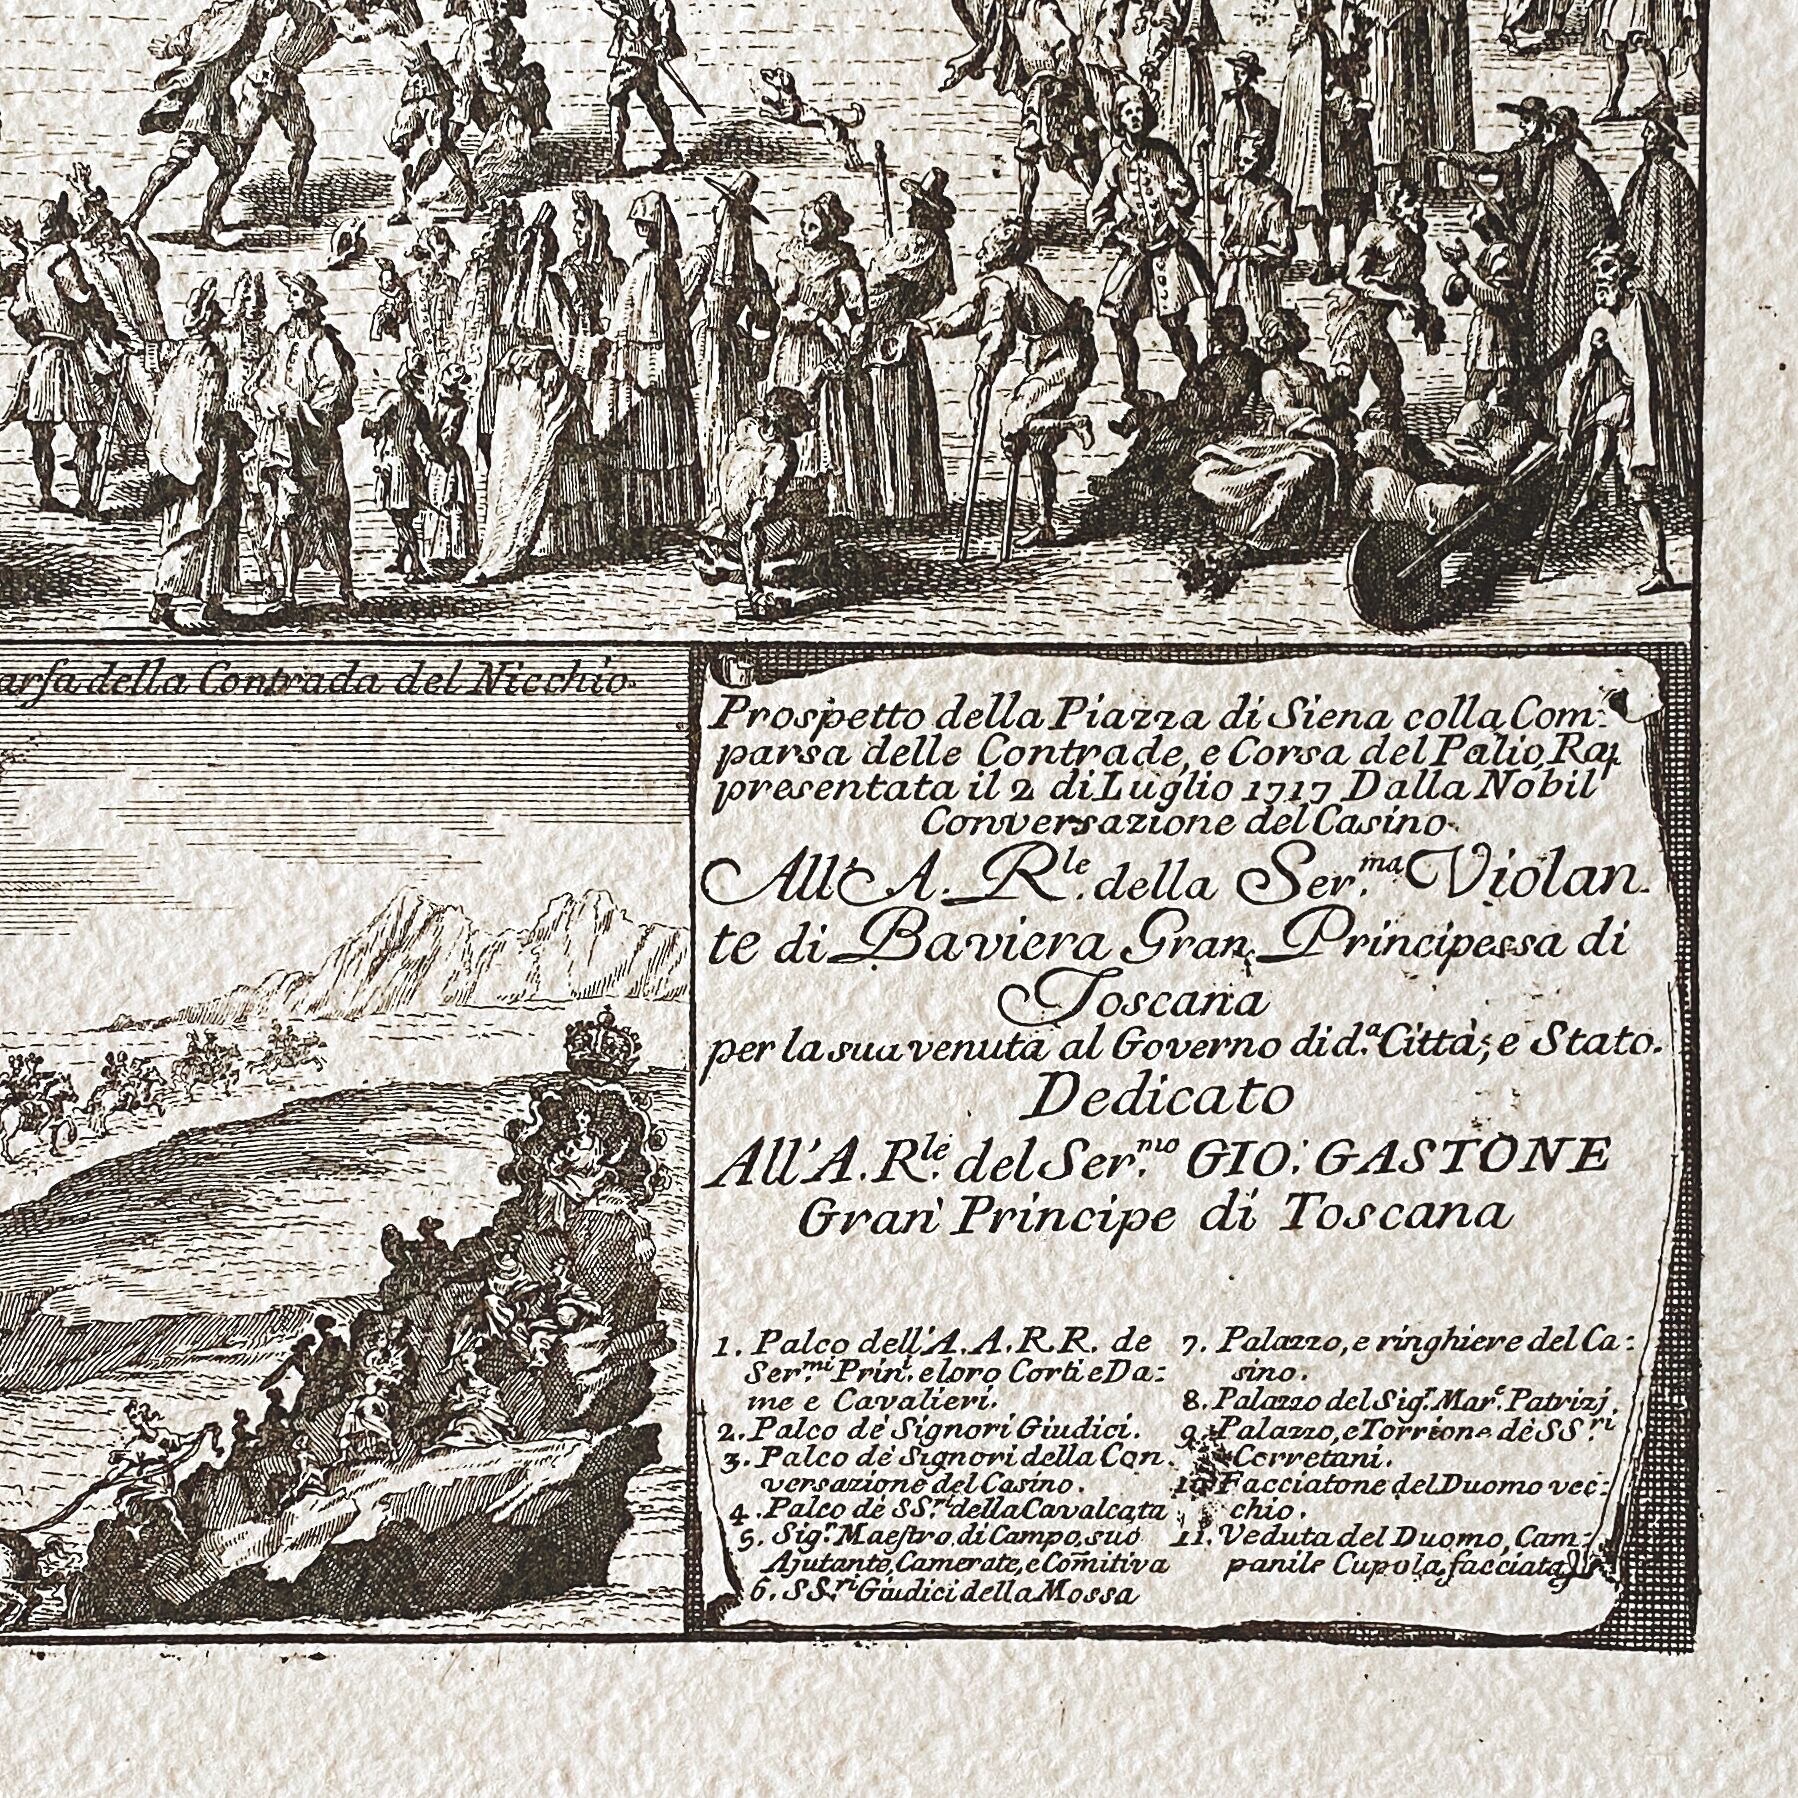 arsa della Contrada del Nicchio.
Prospetto della Piazza di Siena colla Com:
parsa delle Contrade, e Corsa del Palio, Rap
presentata il 2 di Luglio 1717 Dalla Nobil
Conversazione del Casino.
All'A. R.le della Ser.ma Violan.
te di Baviera Gran. Principessa di
Toscana
per la sua venuta al Governo di d.a Città, e Stato.
Dedicato
All'A. R.le del Ser.mo GIO: GASTONE
Gran Principe di Toscana
1. Palco dell'A. A. R. R. de
Ser.mi Prin.i e loro Corti e Da:
me e Cavalieri.
2. Palco dè Signori Giudici.
3. Palco dè Signori della Con.
versazione del Casino.
4. Palco dè SS.ri della Cavalcata
5. Sig.r Maestro di Campo, suo
Ajutante, Camerate, e Comitiva
6. SS.ri Giudici della Mossa
7. Palazzo, e ringhiere del Ca:
sino.
8. Palazzo del Sig.r Mar.e Patrizj.
9. Palazzo, e Torrione dè SS.ri
Cerretani.
10. Facciatone del Duomo vec:
chio.
11. Veduta del Duomo, Cam:
panile Cupola, facciata